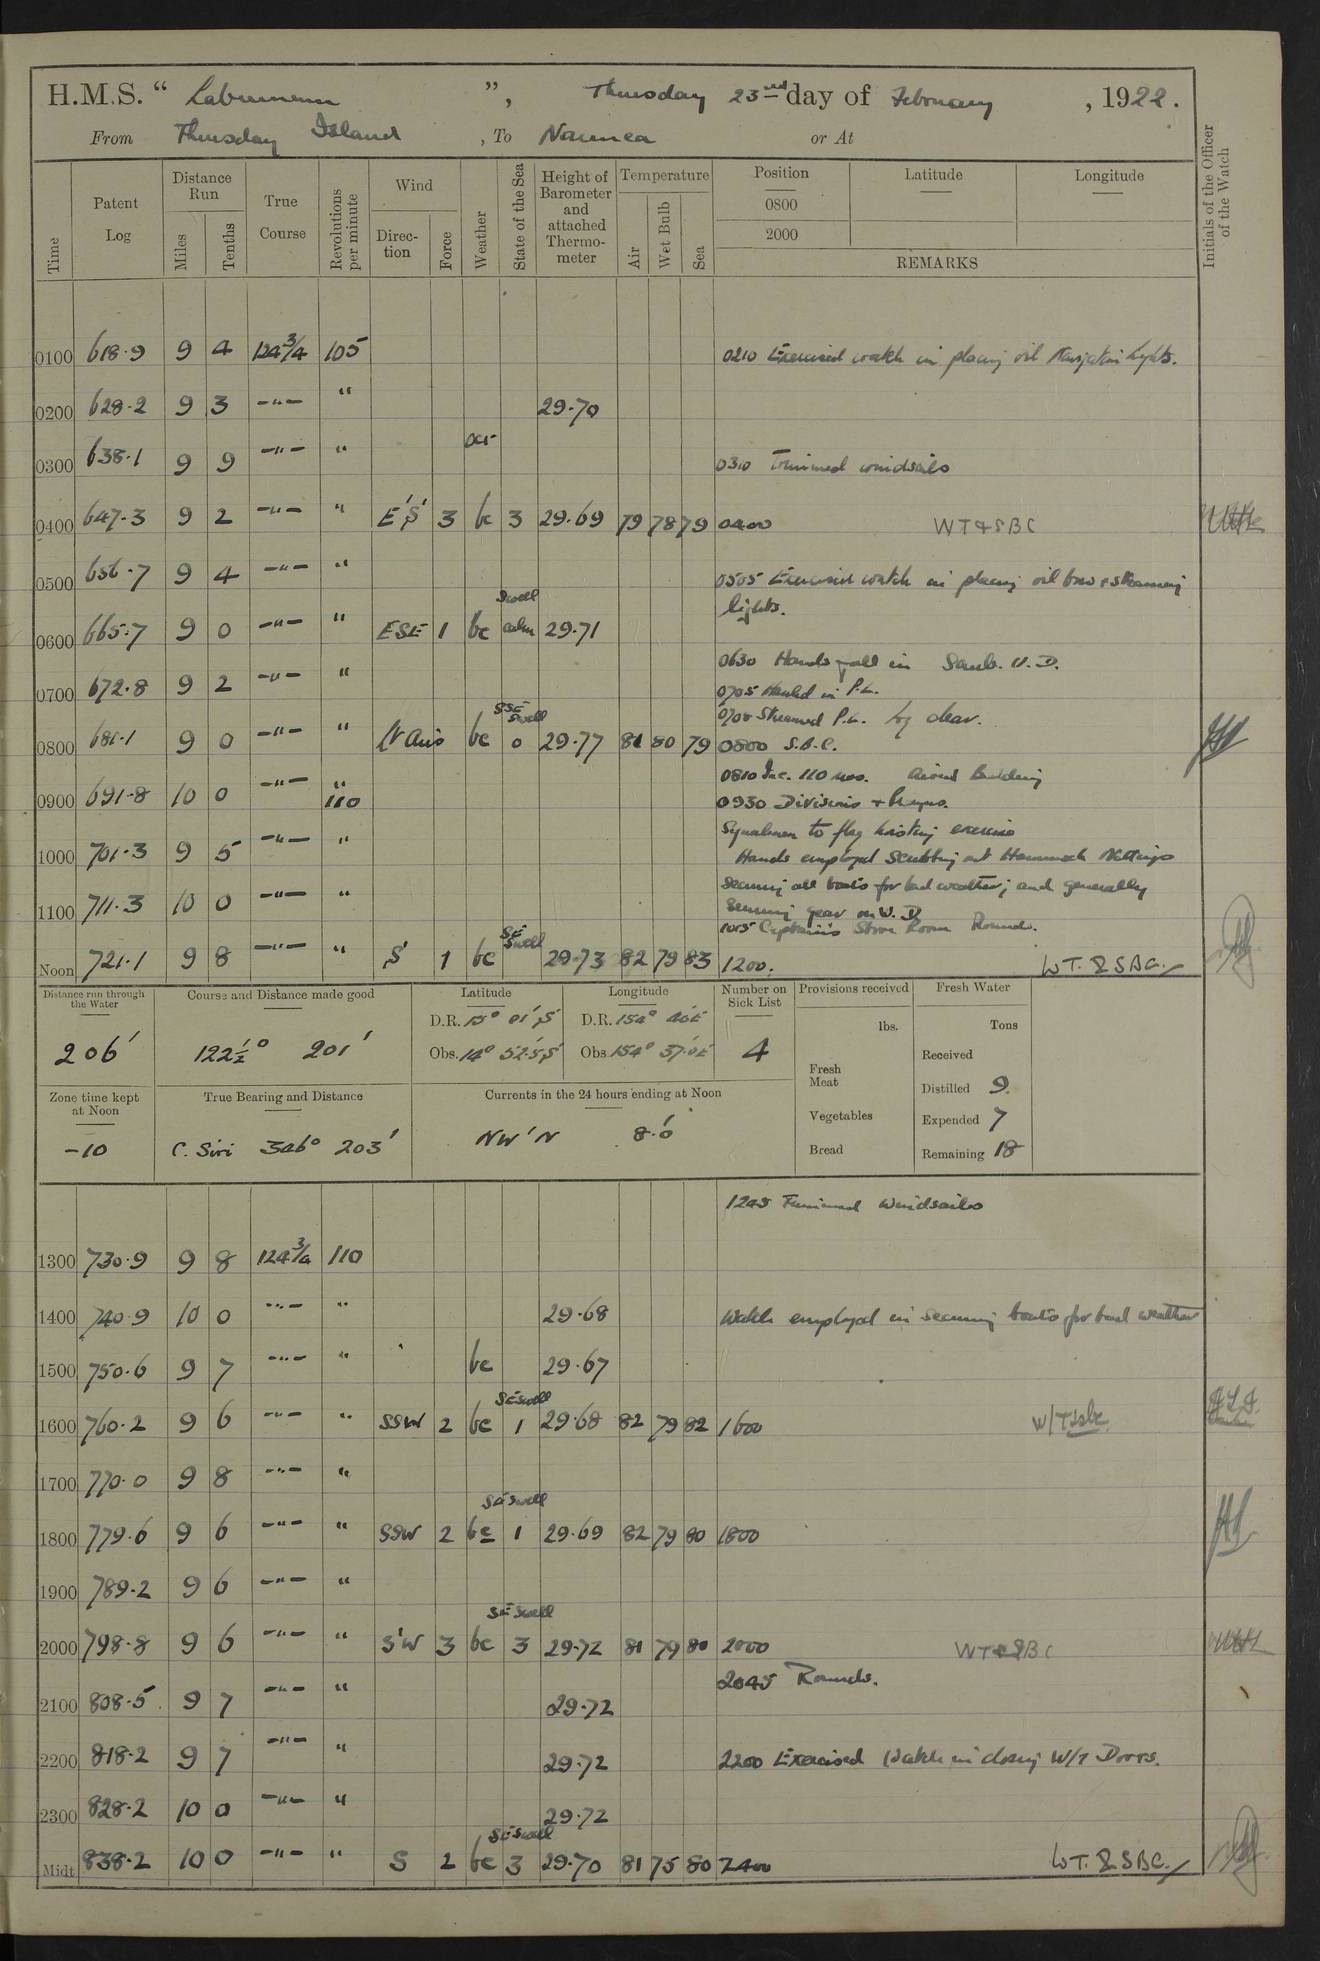 H.M.S. " Laburnum ", Thursday 23rd day of February, 1922.
From Thursday Island, To Noumea or At
Time
Patent Log
Distance Run
Miles
Tenths
True Course
Revolutions per minute
Wind
Direction
Force
Weather
State of the Sea
Height of Barometer and attached Thermometer
Temperature
Air
Wet Bulb
Sea
Position
0800
2000
Latitude
Longitude
REMARKS
Initials of the Officer of the Watch
0100 618.9 9 4 124 3/4 105 0210 Exercised watch in placing oil Navigation Lights.
0200 628.2 9 3 -"- " 29.70
ocr
0300 638.1 9 9 -"- " 0310 Trimmed windsails
0400 647.3 9 2 -"- " E'S 3 bc 3 29.69 79 78 79 0400 WT & SBC
0500 656.7 9 4 -"- " 0505 Exercised watch in placing oil bow & steaming
lights.
0600 665.7 9 0 -"- " ESE 1 bc Swell calm 29.71
0630 Hands fall in Scrub. U.D.
0700 672.8 9 2 -"- " 0705 Hauled in P.L.
0708 Streamed P.L. log clear.
0800 681.1 9 0 -"- " Lt Airs bc SSE swell 0 29.77 81 80 79 0800 S.B.C.
0810 Inc. 110 revs.
0900 691.8 10 0 -"- " 110 0930 Divisions & Prayers.
Signalmen to flag hoisting exercise
1000 701.3 9 5 -"- " Hands employed scrubbing out Hammock Nettings
Securing all boats for bad weather, and generally
1100 711.3 10 0 -"- " securing gear on U.D.
1015 Captain's Store Room Rounds.
Noon 721.1 9 8 -"- " S' 1 bc SE Swell 29.73 82 79 83 1200. WT. & SBC.
Distance run through the Water
206'
Course and Distance made good
122 1/2° 201'
Latitude
D.R. 15° 01' S
Obs. 14° 52.5 S
Longitude
D.R. 154° 40' E
Obs. 154° 37.0 E
Number on Sick List
4
Provisions received
lbs.
Fresh Meat
Vegetables
Bread
Fresh Water
Tons
Received
Distilled 9.
Expended 7
Remaining 18
Zone time kept at Noon
-10
True Bearing and Distance
C. Siri 346° 203'
Currents in the 24 hours ending at Noon
NW'N 8.0'
1245 Trimmed windsails
1300 730.9 9 8 124 3/4 110
1400 740.9 10 0 -"- " 29.68 Watch employed in securing boats for bad weather
1500 750.6 9 7 -"- " bc 29.67
1600 760.2 9 6 -"- " SSW 2 bc SE swell 1 29.68 82 79 82 1600 W/T & sbc.
1700 770.0 9 8 -"- "
1800 779.6 9 6 -"- " SSW 2 bc SE swell 1 29.69 82 79 80 1800
1900 789.2 9 6 -"- "
2000 798.8 9 6 -"- " S'W 3 bc SE Swell 3 29.72 81 79 80 2000 WT & SBC
2045 Rounds.
2100 808.5 9 7 -"- " 29.72
2200 818.2 9 7 -"- " 29.72 2200 Exercised Watch in closing W/T Doors.
2300 828.2 10 0 -"- " 29.72
Midt 838.2 10 0 -"- " S 2 bc SE Swell 3 29.70 81 75 80 2400 WT. & SBC.